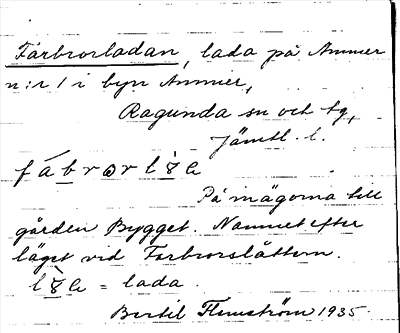 Farbrorsladan, lada på Ammer
n:r 1 i byn Ammer,
Ragunda sn och tg,
Jämtl. l.
På mägorna till
gården Bygget. Namnet efter
läget vid Farbrorslåttern.
= lada.
Bertil Flemström 1935.